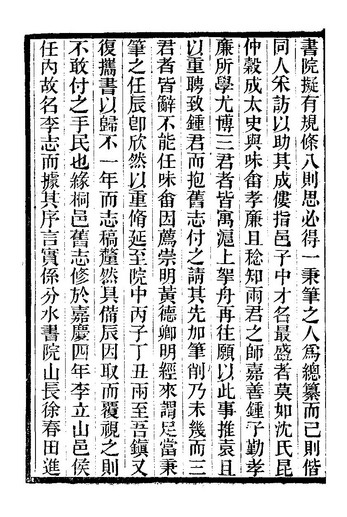 書院擬有規條八則思必得一秉筆之人爲總纂而已則偕
同人釆訪以助其成僂指邑子中才名最盛者莫如沈氏昆
仲穀成太史與味畬孝廉且稔知兩君之師嘉善鍾子勤孝
廉所學尤博三君者皆寓滬上拏舟再往願以此事推袁且
以重聘致鍾君而抱舊志付之請其先加筆削乃未幾而三
君者皆辭不能任味畬因薦崇明黃德卿明經來謂足當秉
筆之任辰卽欣然以重脩延至院中丙子丁丑兩至吾鎭又
復攜書以歸不一年而志稿釐然具備辰因取而覆視之則
不敢付之手民也緣桐邑舊志修於嘉慶四年李立山邑侯
任內故名李志而據其序言實係分水書院山長徐春田進